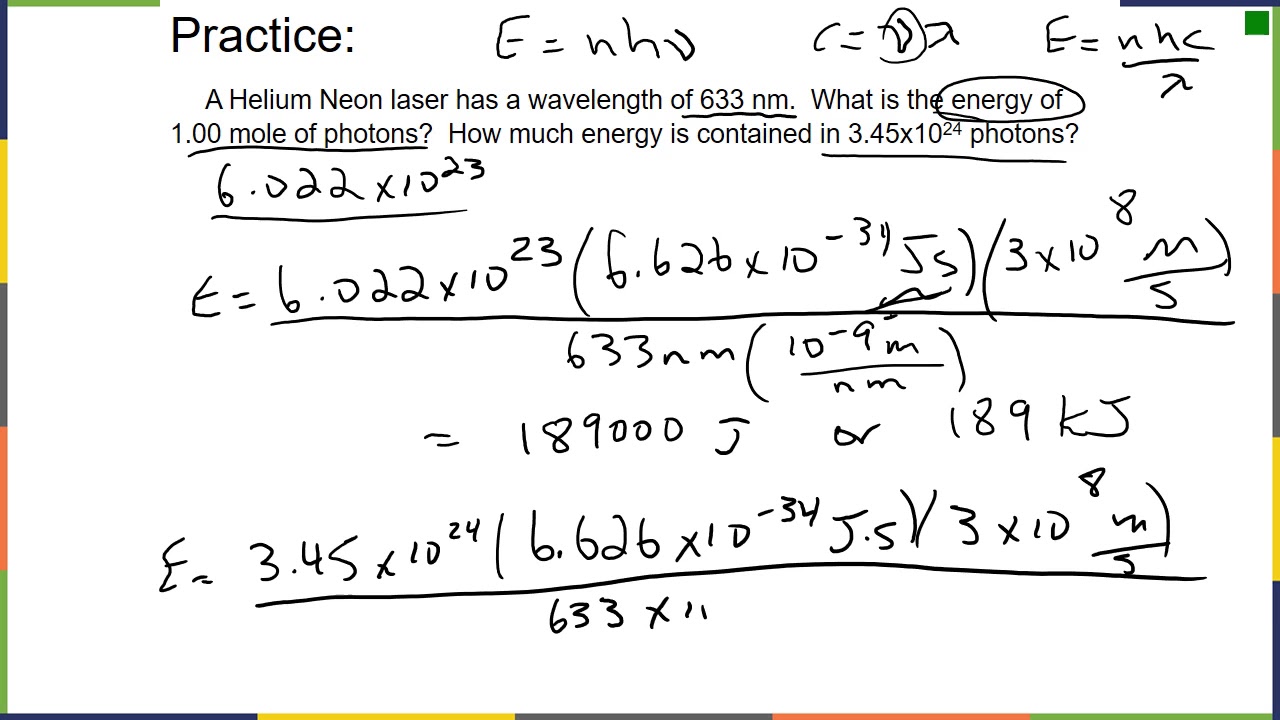 Practice: E = nhν c = νλ E = nhc/λ
A Helium Neon laser has a wavelength of 633 nm. What is the energy of
1.00 mole of photons? How much energy is contained in 3.45x10²⁴ photons?
6.022 x10²³
E = 6.022 x10²³ (6.626 x 10⁻³⁴ Js)(3 x 10⁸ m/s)
633 nm (10⁻⁹ m/nm)
= 189000 J or 189 kJ
E = 3.45 x 10²⁴ (6.626 x10⁻³⁴ J.s)(3 x 10⁸ m/s)
633 x